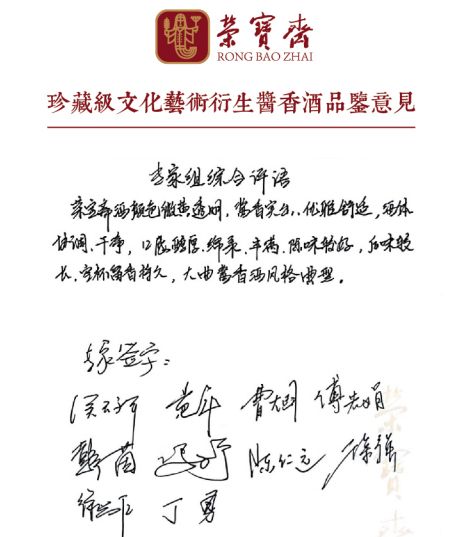 榮寶齋
RONG BAO ZHAI
珍藏級文化藝術衍生醬香酒品鑒意見
专家组综合评语
荣宝斋酒颜色微黄透明,酱香突出、优雅舒适,酒体
协调、干净,口感醇厚、绵柔、丰满、陈味较好,后味较
长、空杯留香持久,大曲酱香酒风格典型。
专家签字:
曹大明 傅志娟
陈仁远 徐强
丁勇
榮寶齋